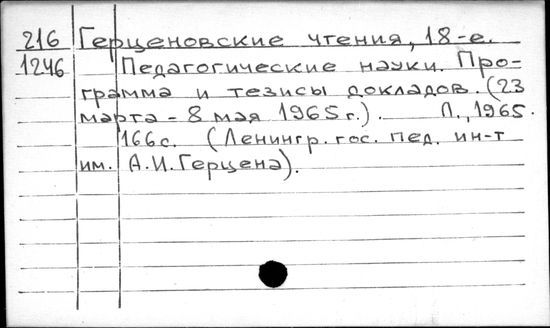 216 Герценовские чтения, 18-е.
1246 Педагогические науки. Про-
грамма и тезисы докладов. (23
марта - 8 мая 1965 г.). Л., 1965.
166 с. (Ленингр. гос. пед. ин-т
им. А.И. Герцена).